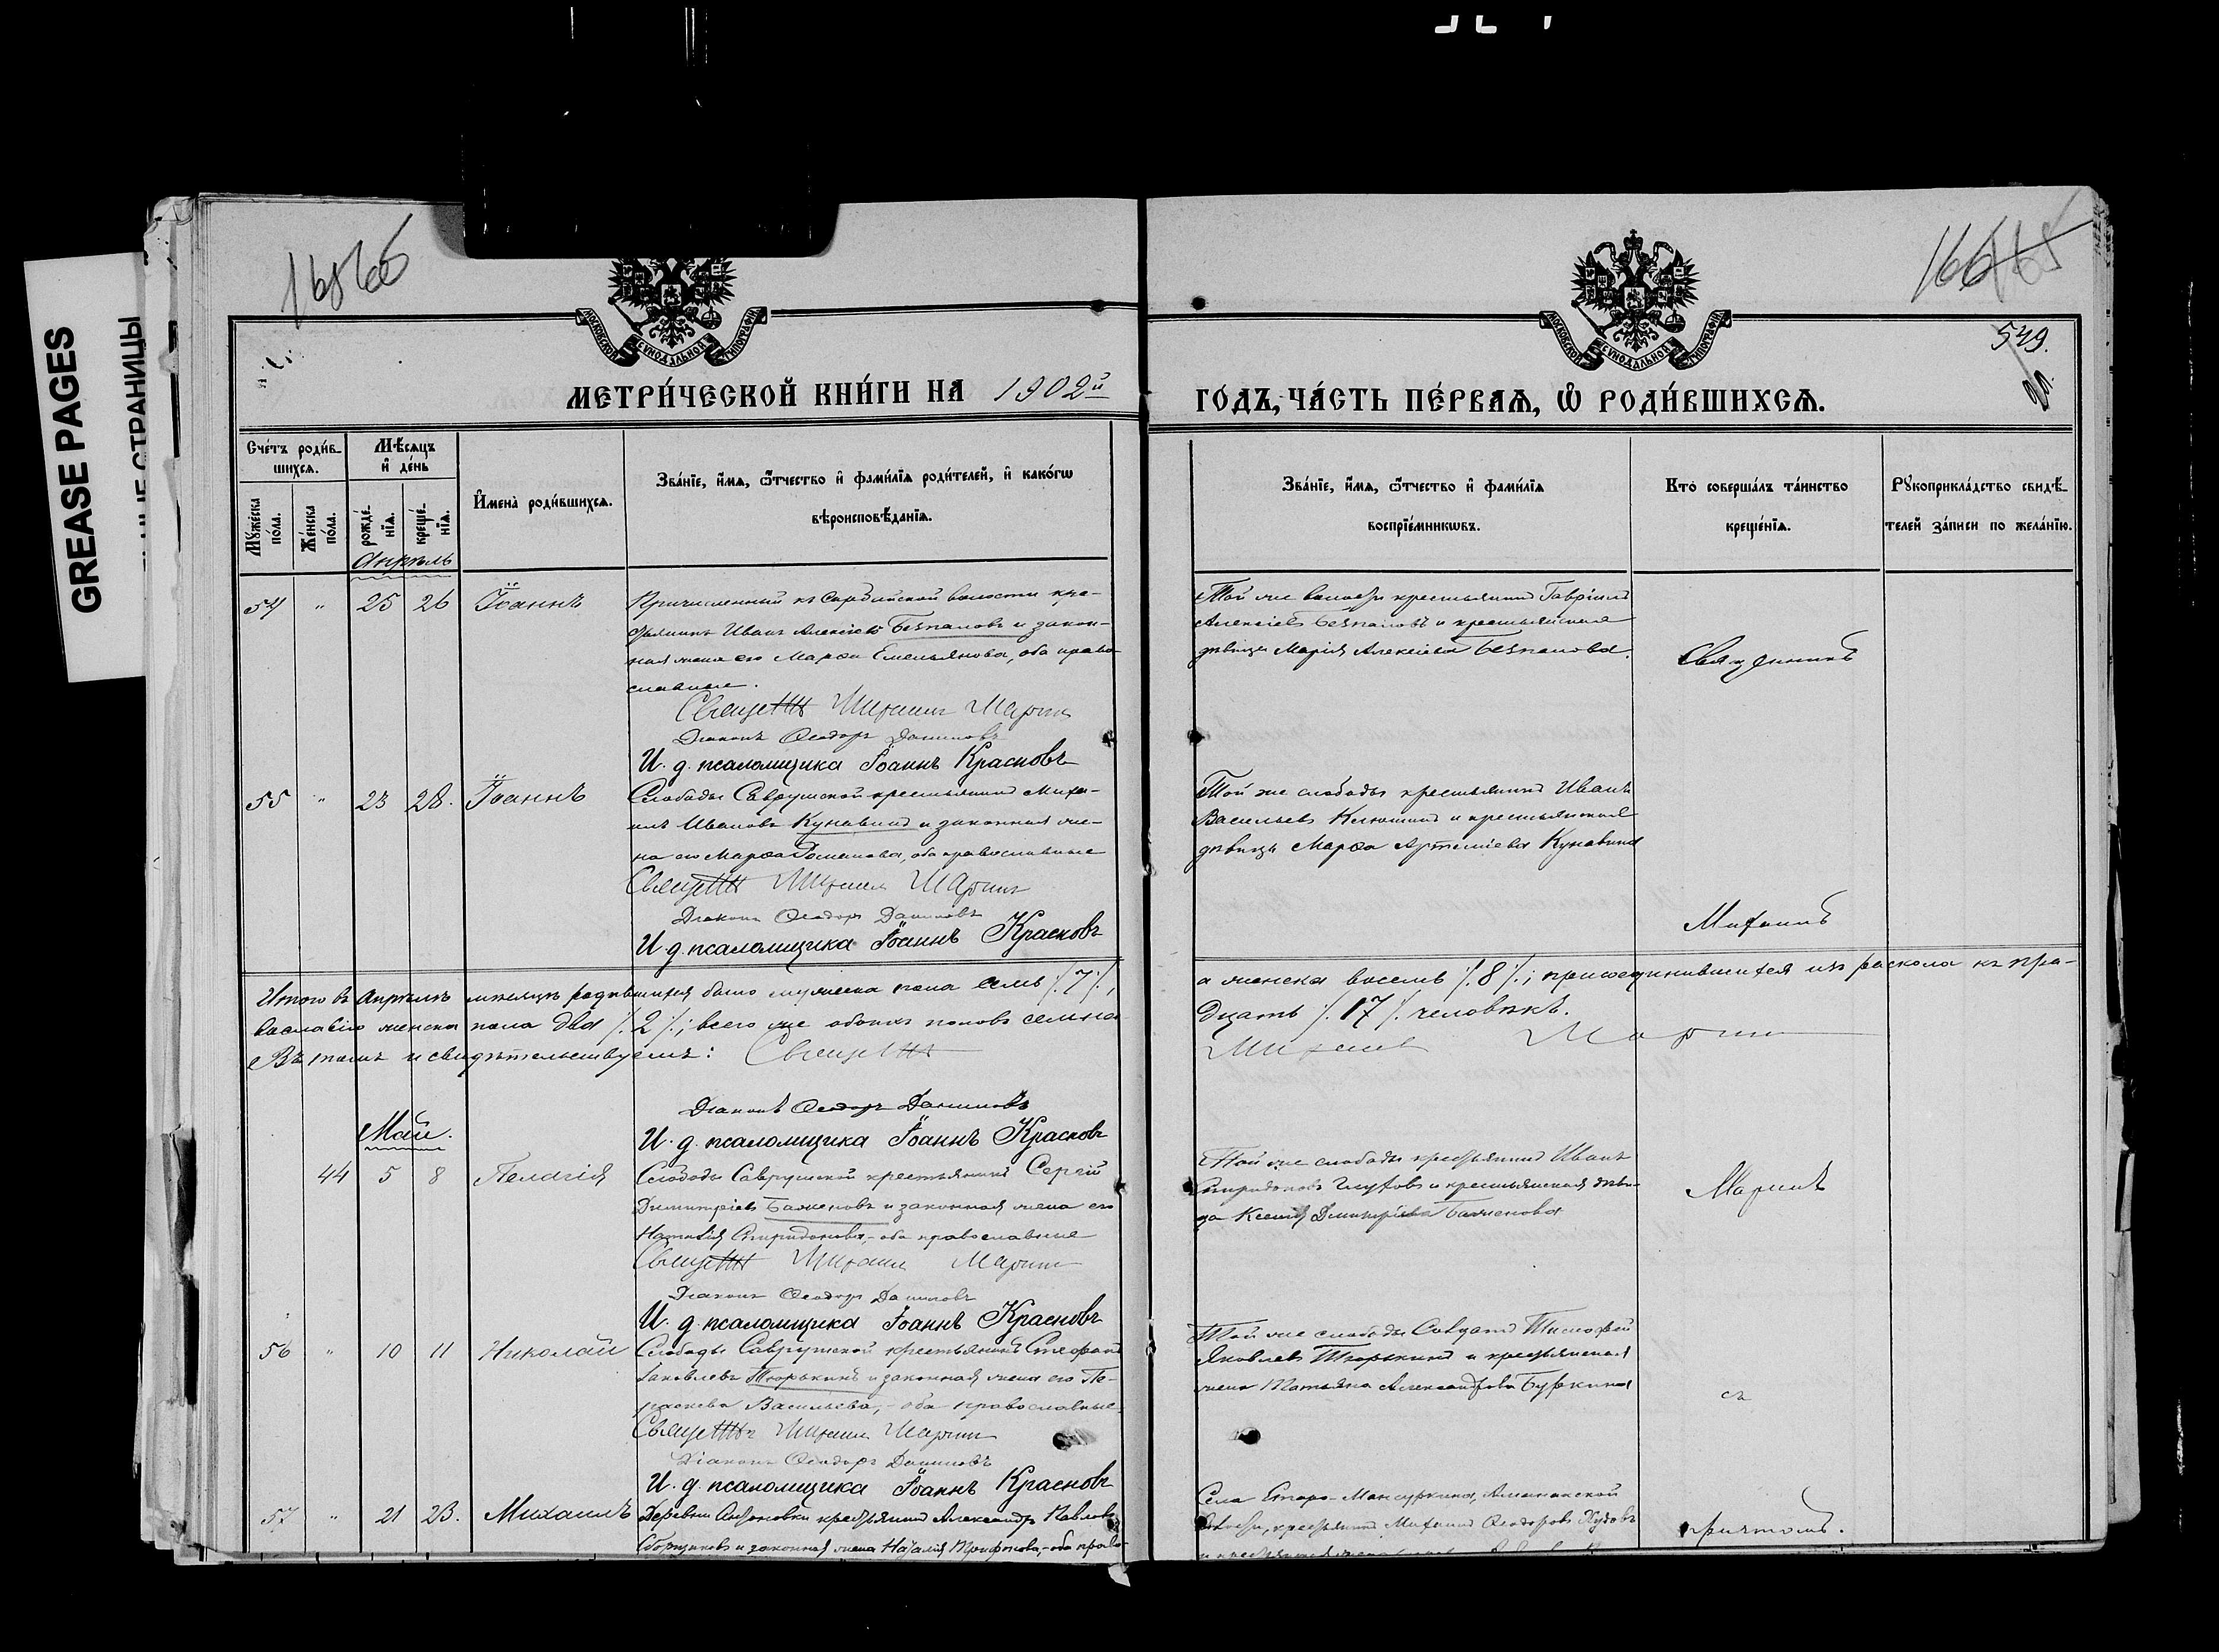 GREASE PAGES
СТРАНИЦЫ
166
549.
МОСКОВСКОЙ СѴНОДАЛЬНОЙ ТИПОГРАФІИ
МОСКОВСКОЙ СѴНОДАЛЬНОЙ ТИПОГРАФІИ
МЕТРИ́ЧЕСКОЙ КНИ́ГИ НА 1902й
ГОДЪ, ЧА́СТЬ ПЕ́РВАѦ, Ѽ РОДИ́ВШИХСѦ.
Сче́тъ роди́в-
шихсѧ.
Мꙋ́жеска по́ла.
Же́нска по́ла.
Мѣ́сѧцъ
и҆ де́нь
рожде́-нїѧ.
креще́-нїѧ.
И҆мена̀ роди́вшихсѧ.
Зва́нїе, и҆́мѧ, ѻ҆́тчество и҆ фами́лїѧ роди́телей, и҆ како́гѡ
вѣроисповѣ́данїѧ.
Зва́нїе, и҆́мѧ, ѻ҆́тчество и҆ фами́лїѧ
воспрїе́мникѡвъ.
Кто̀ соверша́лъ та́инство
креще́нїѧ.
Рꙋкоприкла́дство свидѣ́-
телей за́писи по жела́нїю.
Апрѣль
54 " 25 26 Іоаннъ
Причисленный къ волости кре-
стьянинъ Иванъ Алексіевъ Безпаловъ и закон-
ная жена его Марѳа Емельянова, оба право-
славные.
Священн. Михаилъ Маринъ
Діаконъ Ѳеодоръ Даниловъ
И. д. псаломщика Іоаннъ Красновъ
Той же волости крестьянинъ Гавріилъ
Алексіевъ Безпаловъ и крестьянская
дѣвица Марія Алексіева Безпалова.
Священникъ
55 " 23 28. Іоаннъ
Слободы Саврушской крестьянинъ Миха-
илъ Ивановъ Кунавинъ и законная же-
на его Марѳа, оба православные
Священн. Михаилъ Маринъ
Діаконъ Ѳеодоръ Даниловъ
И. д. псаломщика Іоаннъ Красновъ
Той же слободы крестьянинъ Иванъ
Васильевъ и крестьянская
дѣвица Марѳа Артеміева Кунавина
Михаилъ
Итого въ апрѣлѣ мѣсяцѣ родившихся было мужеска пола семь /.7./,
а женска восемь /.8./; присоединившихся изъ раскола къ пра-
вославію женска пола два /.2./; всего же обоихъ половъ семна-
дцать /.17./ человѣкъ.
Въ томъ и свидѣтельствуемъ: Священн.
Михаилъ Маринъ
Діаконъ Ѳеодоръ Даниловъ
И. д. псаломщика Іоаннъ Красновъ
Май.
44 5 8 Пелагія
Слободы Саврушской крестьянинъ Сергій
Димитріевъ Баженовъ и законная жена его
Наталія Спиридонова, - оба православные
Священн. Михаилъ Маринъ
Діаконъ Ѳеодоръ Даниловъ
И. д. псаломщика Іоаннъ Красновъ
Той же слободы крестьянинъ Иванъ
Спиридоновъ Глуховъ и крестьянская дѣви-
ца Ксенія Димитріева Баженова
Маринъ
56 " 10 11 Николай
Слободы Саврушской крестьянинъ Стефанъ
Іаковлевъ Тюрькинъ и законная жена его Па-
раскева Васильева, - оба православные
Священн. Михаилъ Маринъ
Діаконъ Ѳеодоръ Даниловъ
И. д. псаломщика Іоаннъ Красновъ
Той же слободы солдатъ Тимоѳей
Яковлевъ Тюрькинъ и крестьянская
жена Татьяна Александрова Буркина
съ
57 " 21 23. Михаилъ
Деревни Антоновки крестьянинъ Александръ Павловъ
и законная жена Наталія Трифонова, - оба право-
Села Старо-Мансуркина,
волости, крестьянинъ Михаилъ Ѳеодоровъ
причтомъ.